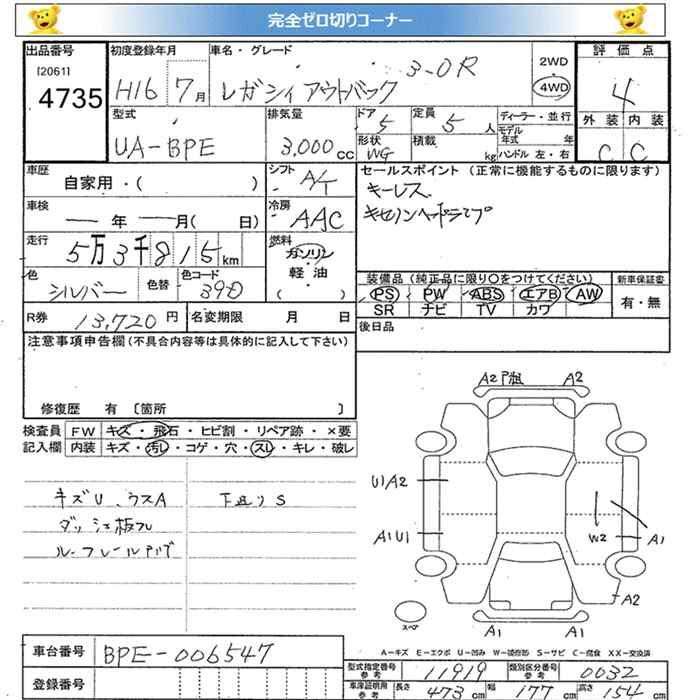 完全ゼロ切りコーナー
出品番号 初度登録年月 車名・グレード 評価点
[2061] 3-0R 2WD
4735 H16 7月 レガシィ アウトバック 4WD 4
型式 排気量 ドア 定員 ディーラー・並行 外装 内装
UA-BPE 3,000cc 5 5人 モデル年式 年 C C
形状 WG 積載 kg ハンドル 左・右
車歴 シフト セールスポイント (正常に機能するものに限ります)
自家用・( ) A/T キーレス
車検 冷房 キセノンヘッドランプ
年 月( 日) AAC
走行 5万3千815km 燃料 ガソリン
軽・油
( )
色 シルバー 色替 色コード 390 装備品 (純正品に限り○をつけてください) 新車保証書
PS PW ABS エアB AW 有・無
SR ナビ TV カワ
R券 13,720円 名変期限 月 日 後日品
注意事項申告欄(不具合内容等は具体的に記入して下さい)
修復歴 有 〔箇所 〕
検査員 FW キズ・飛石・ヒビ割・リペア跡・×要
記入欄 内装 キズ・汚レ・コゲ・穴・スレ・キレ・破レ
A2 A2
キズU、ウスA 下廻りS U1A2
ダッシュ板フレ
ルーフレール A1U1 W2 A1
A2
スペア A1 A1
A-キズ E-エクボ U-凹み W-補修跡 S-サビ C-腐食 XX-交換済
車台番号 BPE-006547
型式指定番号 参考 11919 類別区分番号 参考 0032
登録番号 車庫証明用 参考 長さ 473cm 幅 177cm 高さ 154cm